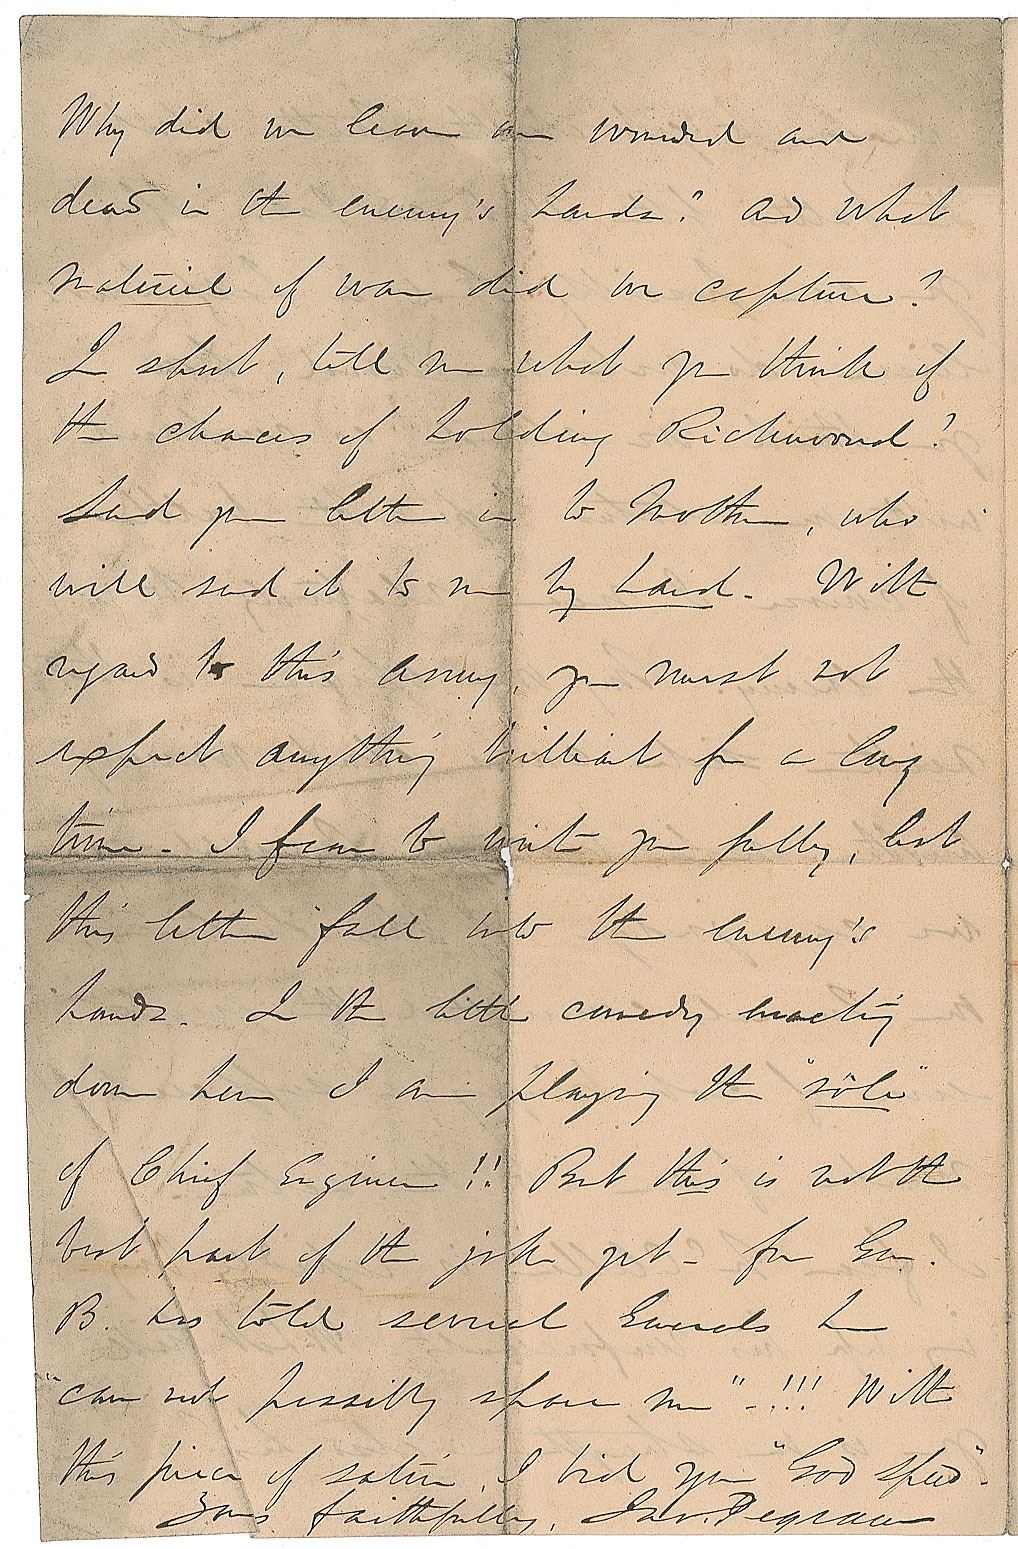 Why did we leave our wounded and
dead in the enemy's hands? And what
materiel of war did we capture?
In short, tell me what you think of
the chances of holding Richmond?
Send your letter in to Mother, who
will send it to me by hand. With
regard to this army, you must not
expect anything brilliant for a long
time. I fear to write you fully, lest
this letter fall into the enemy's
hands. In the little comedy enacting
down here I am playing the "rôle"
of Chief Engineer!! But this is not the
best part of the joke yet - for Gen.
B. has told several Generals he
"can not possibly spare me" - !!! With
this piece of satire, I bid you "God speed".
Yours faithfully, Jno. Pegram